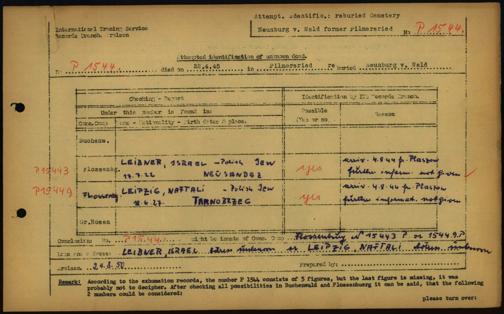 Attempt. Identific.: reburied Cemetery
International Tracing Service
Records Branch. Arolsen
Neunburg v. Wald former Pilmersried
No P 1544.
Attempted identification of unknown dead.
No P 1544. died on 22.4.45 in Pilmersried re buried Neunburg v. Wald
Checking - Report
Identification by ITS Records Branch.
Under this number is found in:
Possible
Yes or no.
Reason
Conc.Camp Name - Nationality - Birth date & place.
Buchenw.
P 15443 Flossenbg. LEIBNER, ISRAEL - Polish Jew yes arriv. 4.8.44 fr. Plaszow
.22 NEUSANDEZ further inform. not given
P 15449 Flossenbg LEIPZIG, NAFTALI - Polish Jew yes arriv. 4.8.44 fr. Plaszow
.27 TARNOBZEG further informat. not given
Gr.Rosen
Conclusion: No. P 1544. might be inmate of Conc. Camp Flossenbürg No 15443 P or 15449 P.
LEIBNER, ISRAEL or LEIPZIG, NAFTALI
Arolsen. 24.8.50 Prepared by:
Remark: According to the exhumation records, the number P 1544 consists of 5 figures, but the last figure is missing, it was
probably not to decipher. After checking all possibilities in Buchenwald and Flossenbuerg it can be said, that the following
2 numbers could be considered:
please turn over: